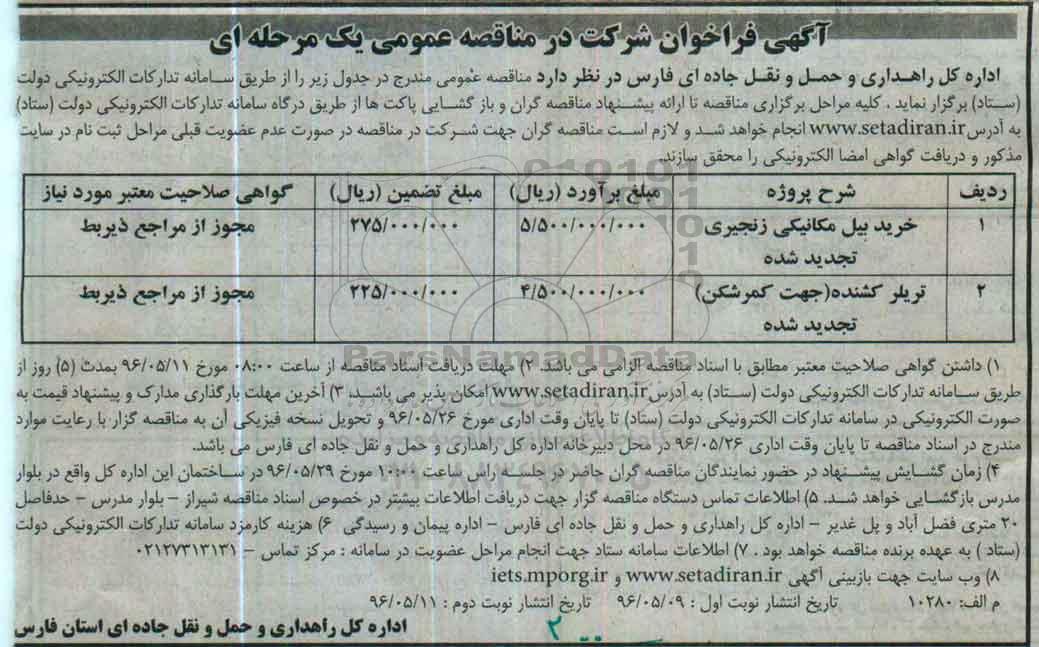 آگهی فراخوان شرکت در مناقصه عمومی یک مرحله ای
اداره کل راهداری و حمل و نقل جاده ای فارس در نظر دارد مناقصه عمومی مندرج در جدول زیر را از طریق سامانه تدارکات الکترونیکی دولت
(ستاد) برگزار نماید . کلیه مراحل برگزاری مناقصه تا ارائه پیشنهاد مناقصه گران و باز گشایی پاکت ها از طریق درگاه سامانه تدارکات الکترونیکی دولت (ستاد)
به آدرس www.setadiran.ir انجام خواهد شد و لازم است مناقصه گران جهت شرکت در مناقصه در صورت عدم عضویت قبلی مراحل ثبت نام در سایت
مذکور و دریافت گواهی امضا الکترونیکی را محقق سازند.
ردیف شرح پروژه مبلغ برآورد (ریال) مبلغ تضمین (ریال) گواهی صلاحیت معتبر مورد نیاز
۱ خرید بیل مکانیکی زنجیری ۵/۵۰۰/۰۰۰/۰۰۰ ۲۷۵/۰۰۰/۰۰۰ مجوز از مراجع ذیربط
تجدید شده
۲ تریلر کشنده(جهت کمرشکن) ۴/۵۰۰/۰۰۰/۰۰۰ ۲۲۵/۰۰۰/۰۰۰ مجوز از مراجع ذیربط
تجدید شده
ParsNamadData
۱) داشتن گواهی صلاحیت معتبر مطابق با اسناد مناقصه الزامی می باشد. ۲) مهلت دریافت اسناد مناقصه از ساعت ۰۸:۰۰ مورخ ۹۶/۰۵/۱۱ بمدت (۵) روز از
طریق سامانه تدارکات الکترونیکی دولت (ستاد) به آدرس www.setadiran.ir امکان پذیر می باشد. ۳) آخرین مهلت بارگذاری مدارک و پیشنهاد قیمت به
صورت الکترونیکی در سامانه تدارکات الکترونیکی دولت (ستاد) تا پایان وقت اداری مورخ ۹۶/۰۵/۲۶ و تحویل نسخه فیزیکی آن به مناقصه گزار با رعایت موارد
مندرج در اسناد مناقصه تا پایان وقت اداری ۹۶/۰۵/۲۶ در محل دبیرخانه اداره کل راهداری و حمل و نقل جاده ای فارس می باشد.
۴) زمان گشایش پیشنهاد در حضور نمایندگان مناقصه گران حاضر در جلسه راس ساعت ۱۰:۰۰ مورخ ۹۶/۰۵/۲۹ در ساختمان این اداره کل واقع در بلوار
مدرس بازگشایی خواهد شد. ۵) اطلاعات تماس دستگاه مناقصه گزار جهت دریافت اطلاعات بیشتر در خصوص اسناد مناقصه شیراز – بلوار مدرس – حدفاصل
۲۰ متری فضل آباد و پل غدیر – اداره کل راهداری و حمل و نقل جاده ای فارس – اداره پیمان و رسیدگی ۶) هزینه کارمزد سامانه تدارکات الکترونیکی دولت
(ستاد ) به عهده برنده مناقصه خواهد بود . ۷) اطلاعات سامانه ستاد جهت انجام مراحل عضویت در سامانه : مرکز تماس – ۰۲۱۲۷۳۱۳۱۳۱
۸) وب سایت جهت بازبینی آگهی www.setadiran.ir و iets.mporg.ir
م الف: ۱۰۲۸۰ تاریخ انتشار نوبت اول : ۹۶/۰۵/۰۹ تاریخ انتشار نوبت دوم : ۹۶/۰۵/۱۱
اداره کل راهداری و حمل و نقل جاده ای استان فارس